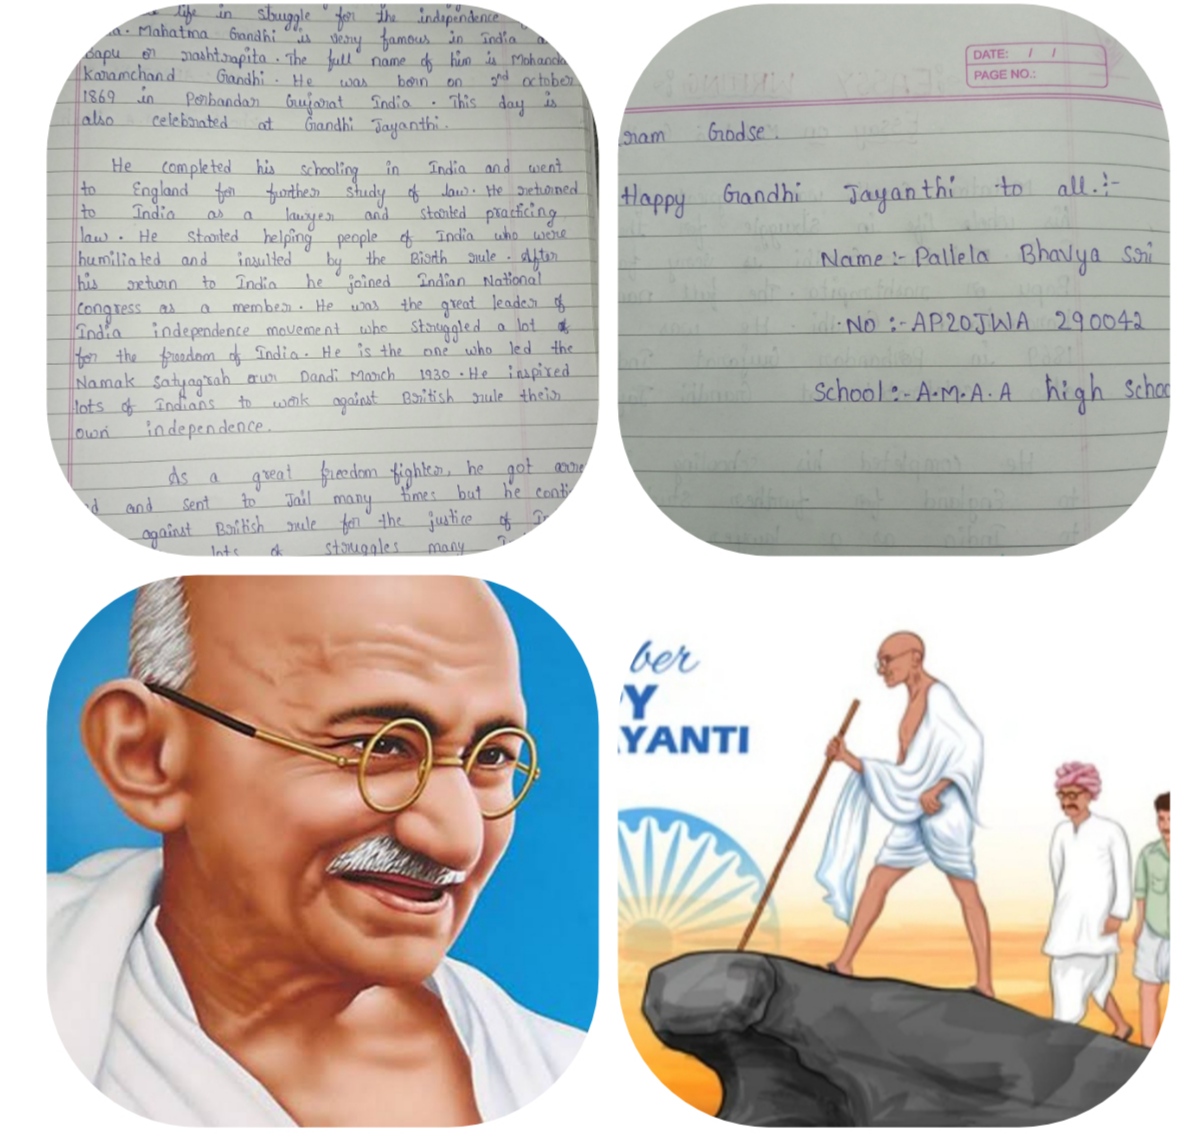 life in struggle for the independence
. Mahatma Gandhi is very famous in India
Bapu or rashtrapita. The full name of him is Mohanda
Karamchand Gandhi. He was born on 2nd october
1869 in Porbandar Gujarat India. This day is
also celebrated at Gandhi Jayanthi.
He completed his schooling in India and went
to England for further study of law. He returned
to India as a lawyer and started practicing
law. He started helping people of India who were
humiliated and insulted by the Bisrth rule. After
his return to India he joined Indian National
Congress as a member. He was the great leader of
India independence movement who struggled a lot
for the freedom of India. He is the one who led the
Namak Satyagrah our Dandi March 1930. He inspired
lots of Indians to work against British rule their
own independence.
As a great freedom fighter, he got arre
d and sent to Jail many times but he conti
against British rule for the justice of
lots of struggles many
DATE: / /
PAGE NO.:
ram Godse.
Happy Gandhi Jayanthi to all.:-
Name:- Pallela Bhavya Sri
No:- AP20JWA 290042
School:- A.M.A.A high Schoo
ber
Y
YANTI